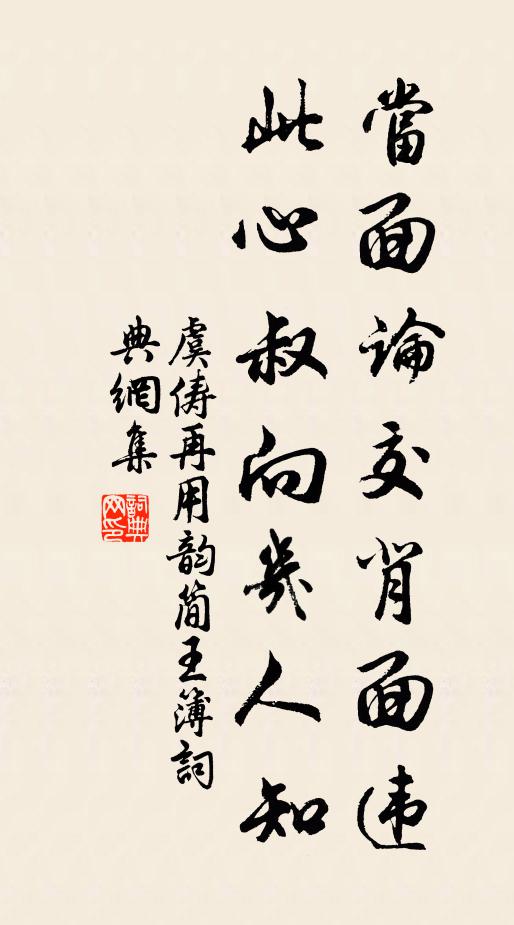 當面論交背面违
此心叔向幾人知
虞俦再用韵简王簿詞
典網集
詞典
网印